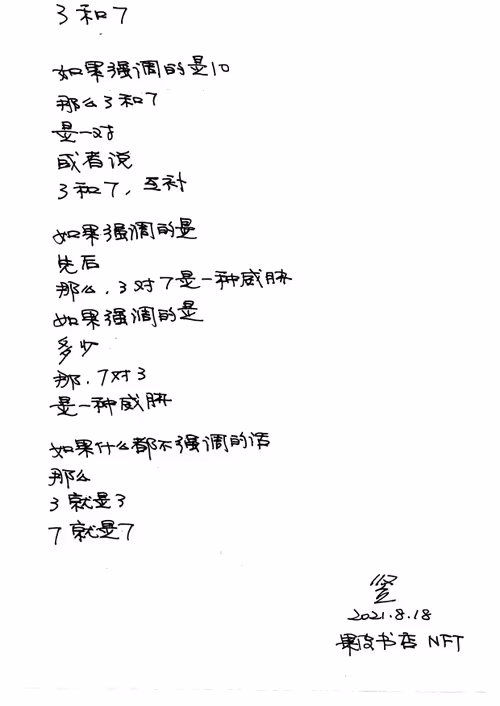 3和7
如果强调的是10
那么3和7
是一对
或者说
3和7，互补
如果强调的是
先后
那么，3对7是一种威胁
如果强调的是
多少
那，7对3
是一种威胁
如果什么都不强调的话
那么
3就是3
7就是7
竖
2021.8.18
果皮书店 NFT